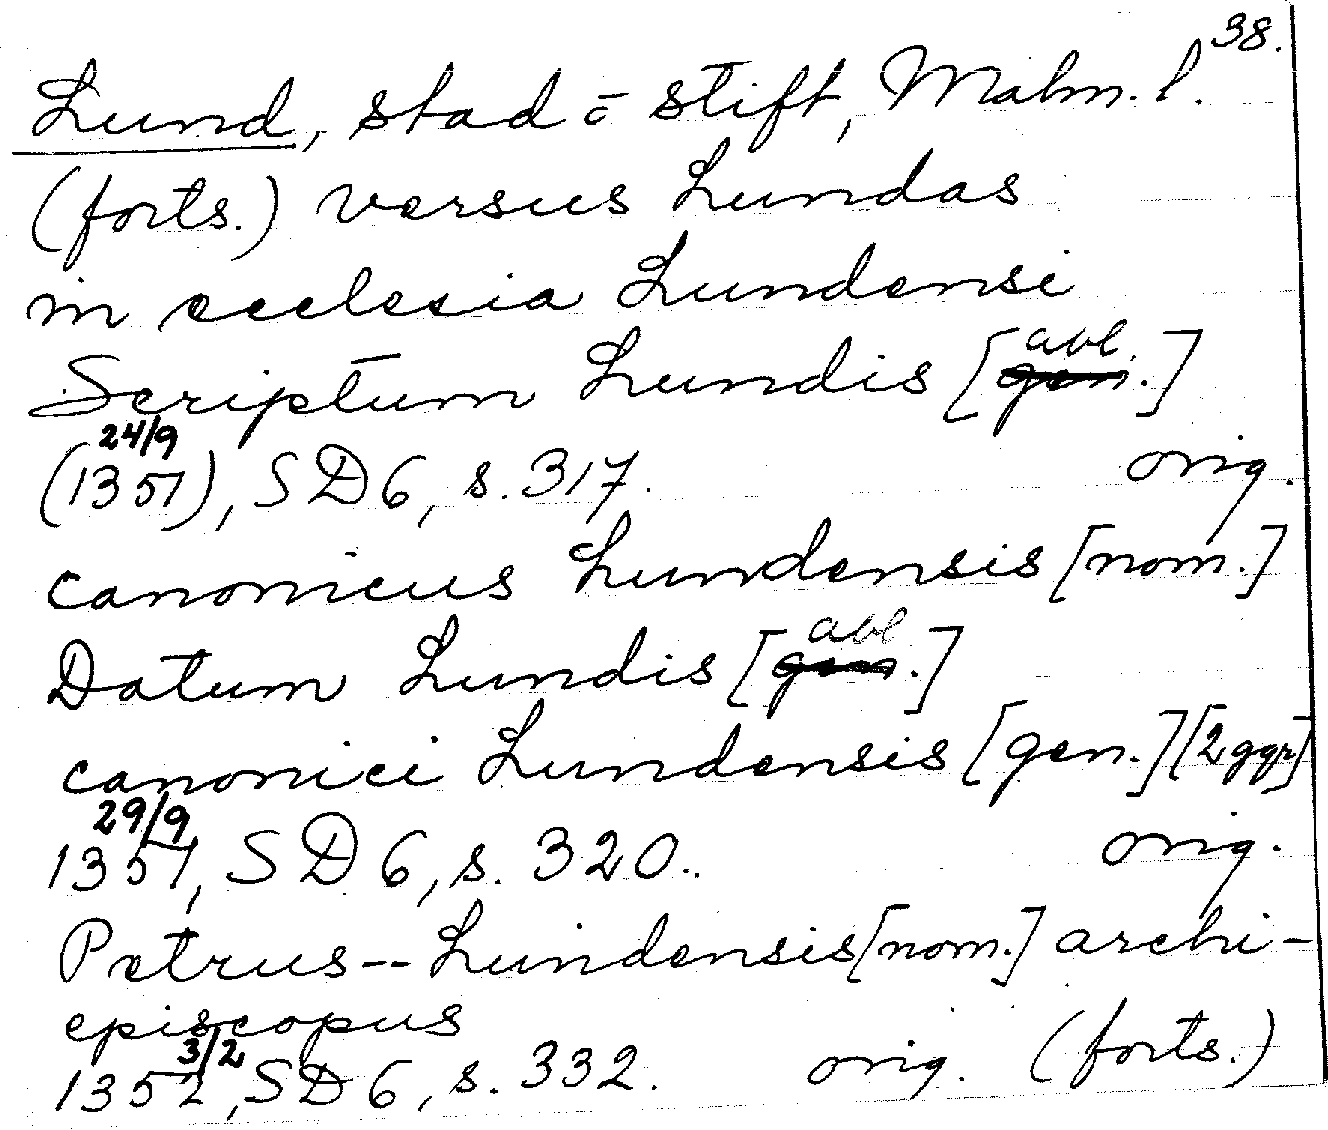 38.
Lund, stad o stift, Malm. l.
(forts.) versus Lundas
in ecclesia Lundensi
Scriptum Lundis [gen. abl.]
24/9
(1351), SD 6, s. 317. orig.
canonicus Lundensis [nom.]
Datum Lundis [gen. abl.]
canonici Lundensis [gen.] [2 ggr]
29/9
1351, SD 6, s. 320. orig.
Petrus -- Lundensis [nom.] archi-
episcopus
3/2
1352, SD 6, s. 332. orig. (forts.)